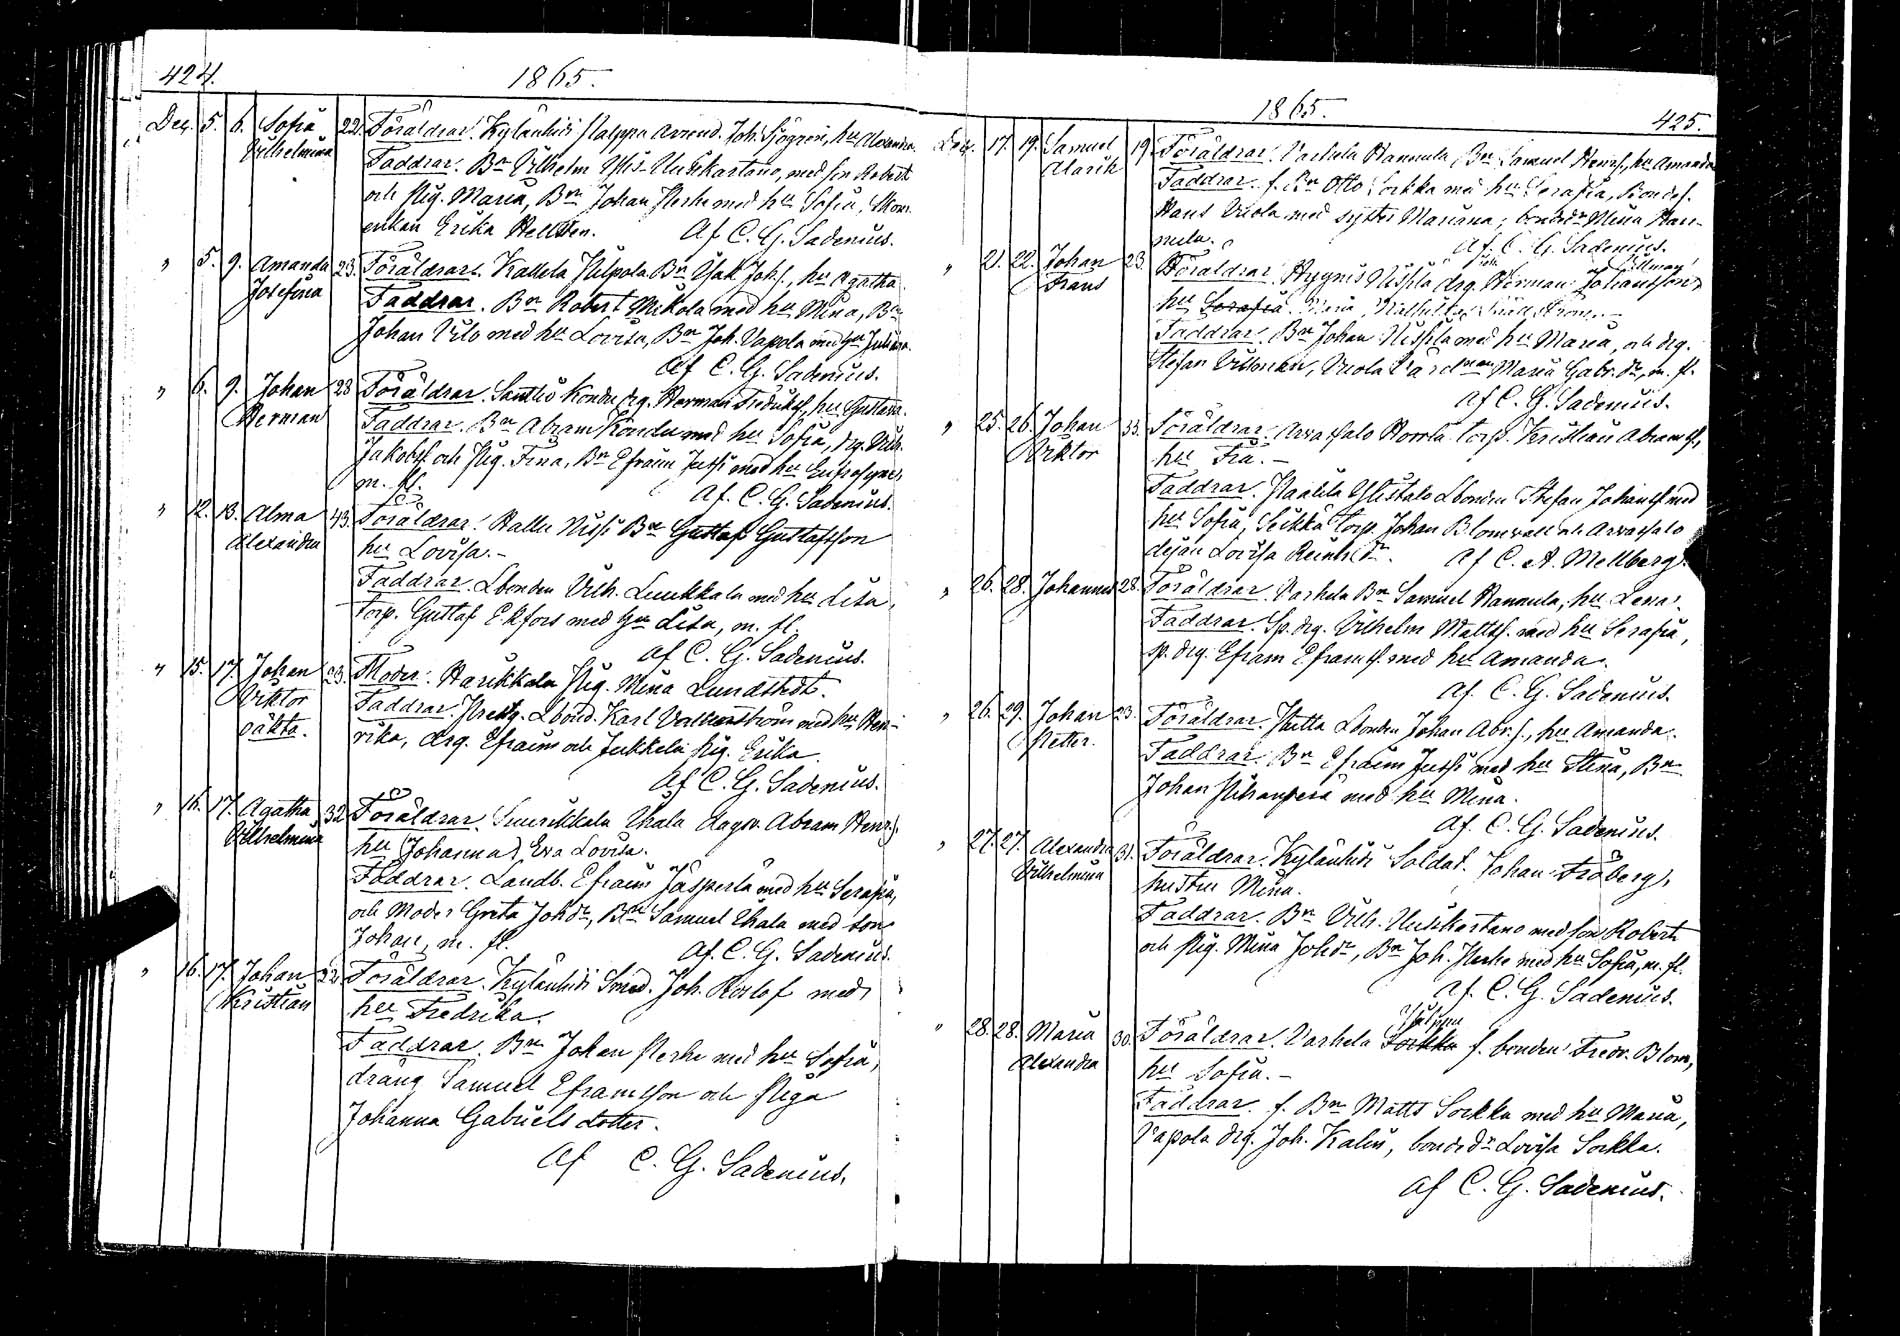 424. 1865.
Dec. 5. 6. Sofia 22. Föräldrar. Kylänhidi Palppa arrend. Joh. Sjögren, hu Alexandra.
Vilhelmina Faddrar. Bn Vilhelm Uusikartano, med son Robert
och pig. Maria, Bn Johan Perho med hu Sofia,
enkan Erika Hellsten. Af C. G. Sadenius.
" 5. 9. Amanda 23. Föräldrar. Kallela Hilpola Bn Isak Joh.f., hu Agatha.
Josefina Faddrar. Bn Robert Mikola med hu Mina, Bn
Johan Vilo med hu Lovisa, Bn Joh. Vapola med hu Juliana.
Af C. G. Sadenius.
" 6. 9. Johan 28 Föräldrar. Santtio Kondu drg. Herman Fredriksf., hu Gustava.
Herman Faddrar. Bn Abram Kondu med hu Sofia, drg. Vilh.
Jakobsf. och pig. Fina, Bn Efraim Jutsi med hu Eufrosyne,
m. fl. Af. C. G. Sadenius.
" 12. 13. Alma 43. Föräldrar. Hallu Nissi Bn Gustaf Gustafsson
Alexandra hu Lovisa. –
Faddrar. Lbonden Vilh. Luukkala med hu Lisa,
torp. Gustaf Ekfors med hu Lisa, m. fl.
Af C. G. Sadenius.
" 15. 17. Johan 23. Moder. Harikkala pig. Mina Lundstedt.
Viktor Faddrar. Prestg. Lbond. Karl Vallenström med hu Hen-
oäkta. rika, drg. Efraim och Jukkola pig. Erika.
Af C. G. Sadenius.
" 16. 17. Agatha 32 Föräldrar. Suurikkala Uhala dagsv. Abram Henr.f.,
Vilhelmina hu Johanna Eva Lovisa.
Faddrar. Landb. Efraim Jäsperlä med hu Serafia,
och Moder Greta Johdr, Bn Samuel Uhala med son
Johan, m. fl. Af. C. G. Sadenius.
" 16. 17. Johan 22. Föräldrar. Kylänhidi Smed. Joh. Roslof med
Kristian hu Fredrika.
Faddrar. Bn Johan Perho med hu Sofia,
dräng Samuel Eframsson och piga
Johanna Gabriels dotter.
Af C. G. Sadenius.
1865. 425.
Dec. 17. 19. Samuel 19. Föräldrar. Varhela Hannula, Bn Samuel Henr.f., hu Amanda
Alarik Faddrar. f. Bn Otto Sorkka med hu Serafia, Bondes.
Hans Uvola med syster Mariana, bondedr Mina Han-
nula. Af. C. G. Sadenius.
" 21. 22. Johan 23. Föräldrar. Hygnis Uusitla drg. Herman Johansson
Frans hu Serafia Maria
Faddrar. Bn Johan Uusitla med hu Maria, och drg.
Stefan Villman, Uvola Maria Gabr.dr, m. fl.
Af C. G. Sadenius.
" 25. 26. Johan 33. Föräldrar. Arvassalo Horrla torp. Kristian Abramsf.,
Viktor hu Fia. –
Faddrar. Haalila Ylistalo Lbonden Stefan Johansf. med
hu Sofia, Seikka torp. Johan Blomvall och Arvassalo
dejan Lovisa Reinh.dr. Af C. A. Mellberg.
" 26. 28. Johannes 28. Föräldrar. Varhela Bn Samuel Hannula, hu Lena.
Faddrar. Sp. drg. Vilhelm Mattsf. med hu Serafia,
sp. drg. Efraim Eframsf. med hu Amanda.
Af. C. G. Sadenius.
" 26. 29. Johan 23. Föräldrar. Hutta Lbonden Johan Abr.f., hu Amanda.
Petter. Faddrar. Bn Efraim Jutsi med hu Stina, Bn
Johan Pihanperä med hu Mina.
Af. C. G. Sadenius.
" 27. 27. Alexandra 31. Föräldrar. Kylänhidi Soldat. Johan Fröberg,
Vilhelmina hustru Mina.
Faddrar. Bn Vilh. Uusikartano med son Robert
och pig. Mina Johdr, Bn Joh. Perho med hu Sofia, m. fl.
Af. C. G. Sadenius.
Palppa
" 28. 28. Maria 30. Föräldrar. Varhela Sorkka f. bonden Fredr. Blom,
Alexandra hu Sofia. –
Faddrar. f. Bn Matts Sorkka med hu Maria,
Vapola drg. Joh. Kalin, bondedr Lovisa Sorkka.
Af C. G. Sadenius.